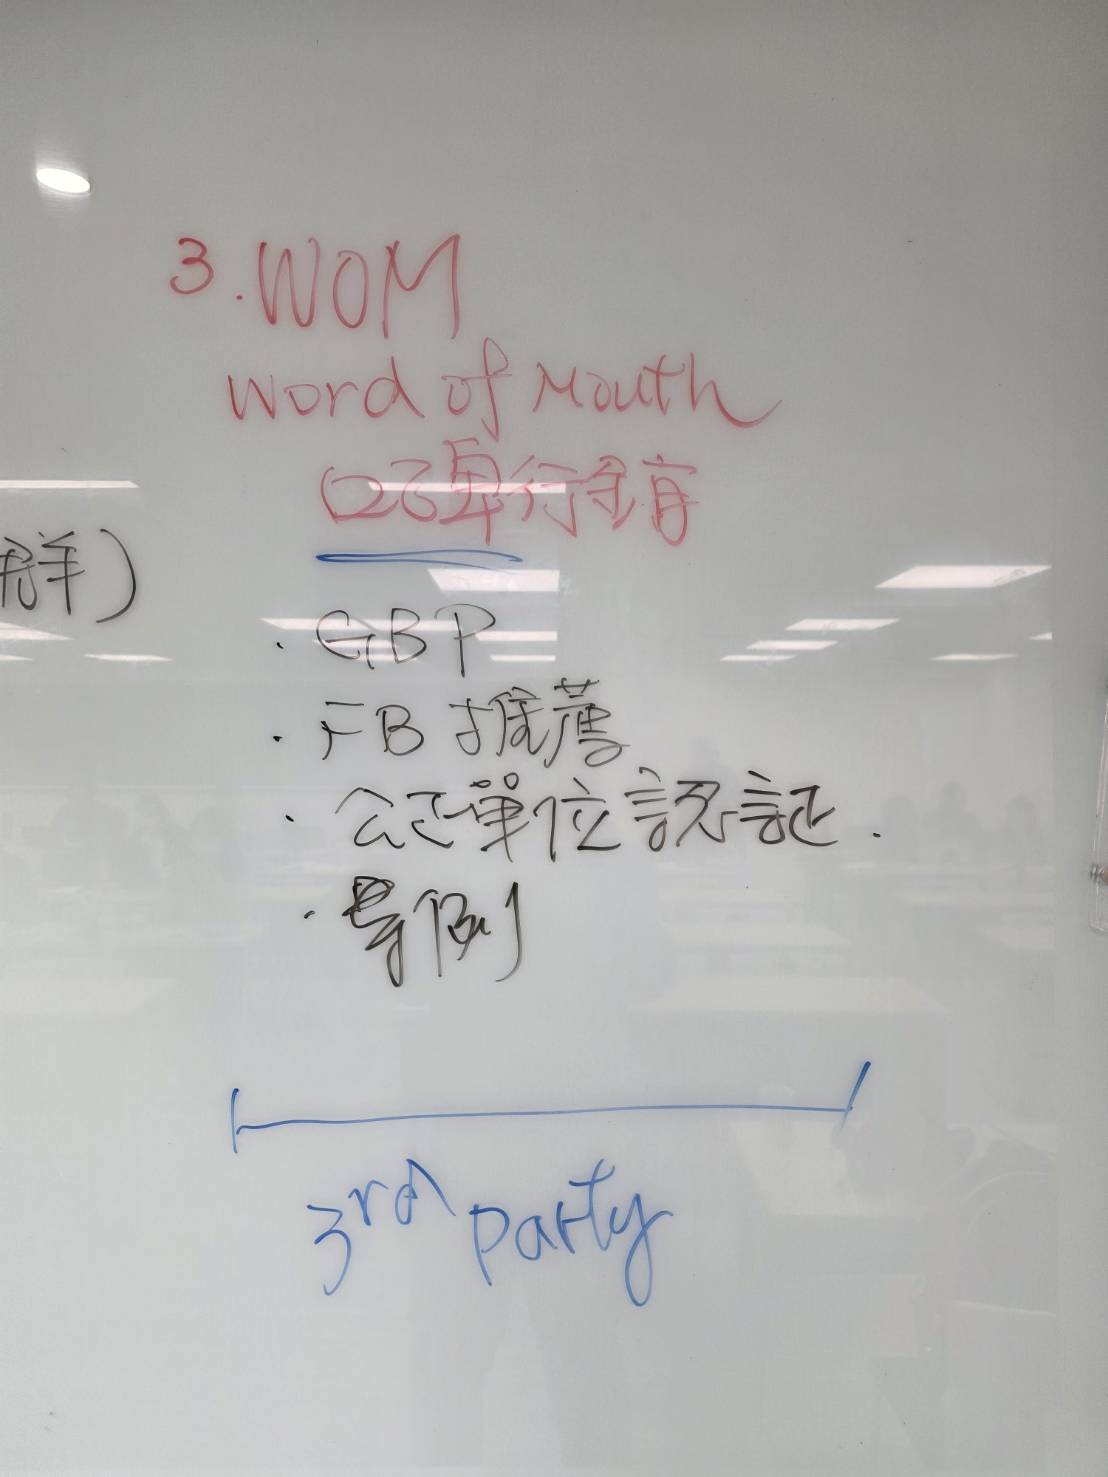 3. WOM
Word of Mouth
口碑行銷
群)
· GBP
· FB 推薦
· 公正單位認証.
3rd party